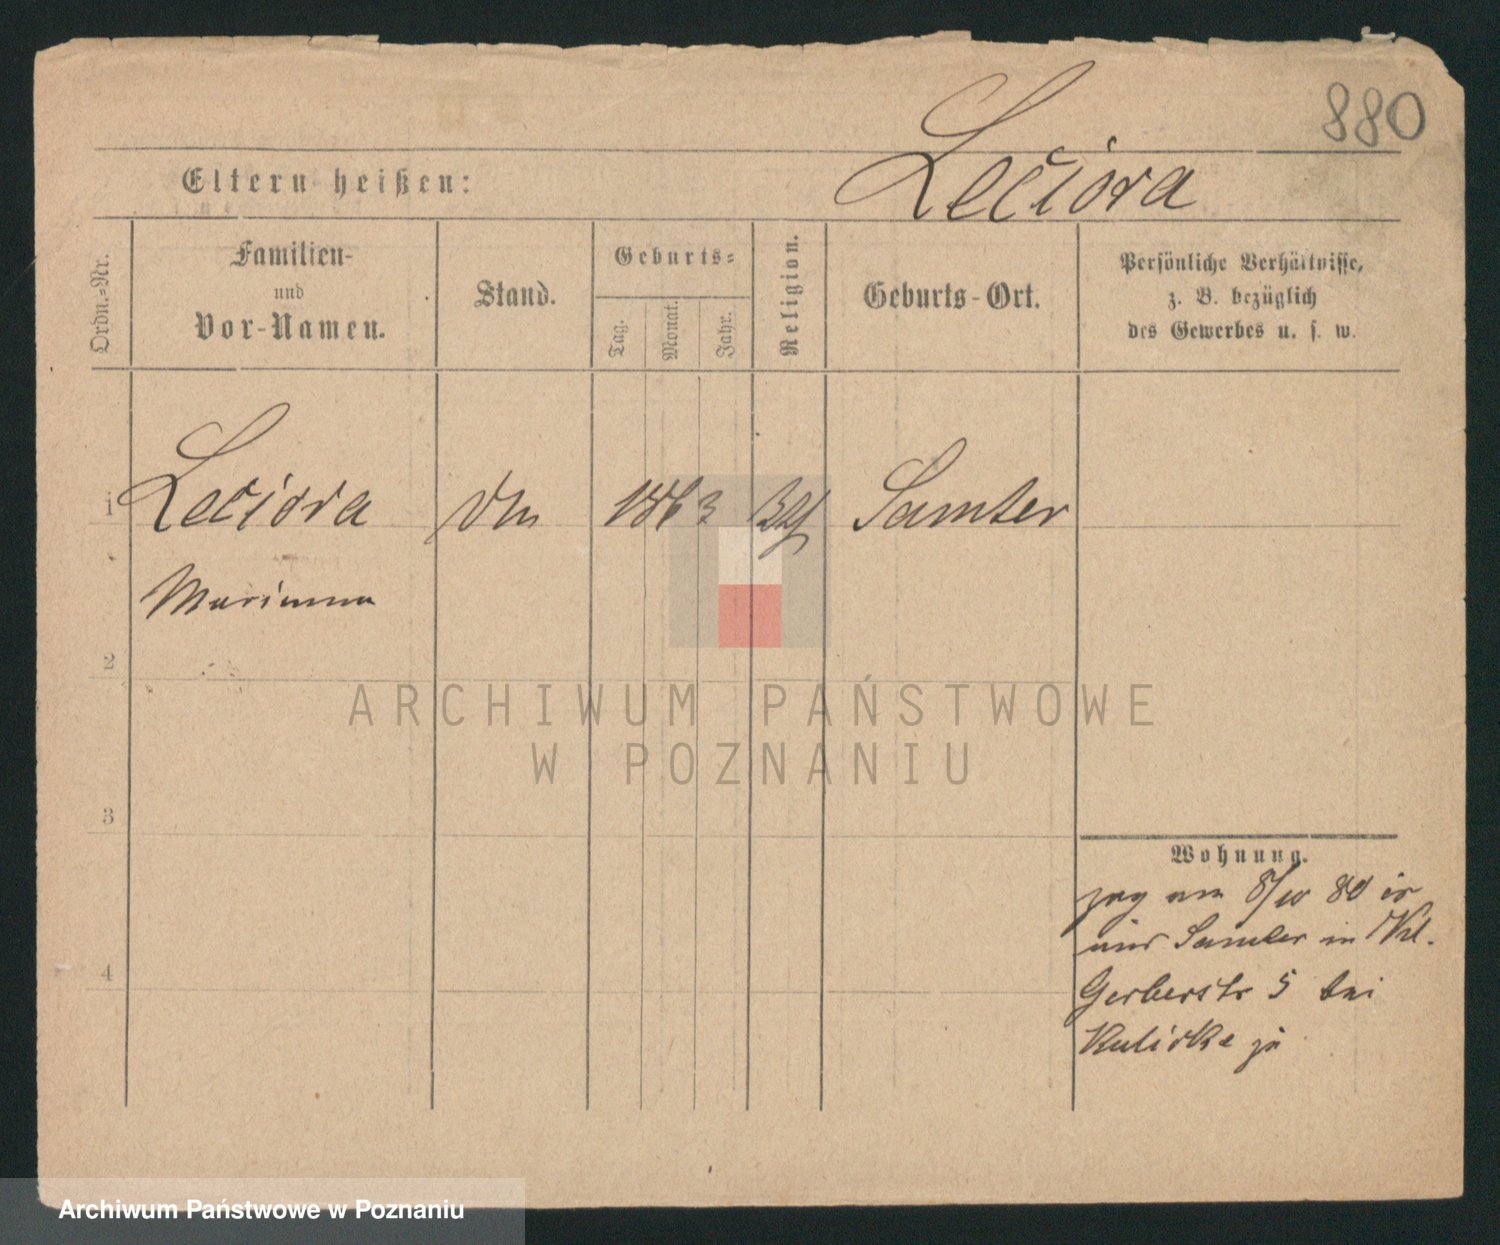 880
Lečiora
Eltern heißen:
Ordn.-Nr.
Familien-
und
Vor-Namen.
Stand.
Geburts-
Tag.
Monat.
Jahr.
Religion.
Geburts-Ort.
Persönliche Verhältnisse,
z. B. bezüglich
des Gewerbes u. s. w.
1 Lečiora 1863 Samter
Marianna
2
ARCHIWUM PAŃSTWOWE
W POZNANIU
3
Wohnung.
zog am 8/10 80
aus Samter in Kl.
4
Gerberstr 5 bei
zu
Archiwum Państwowe w Poznaniu